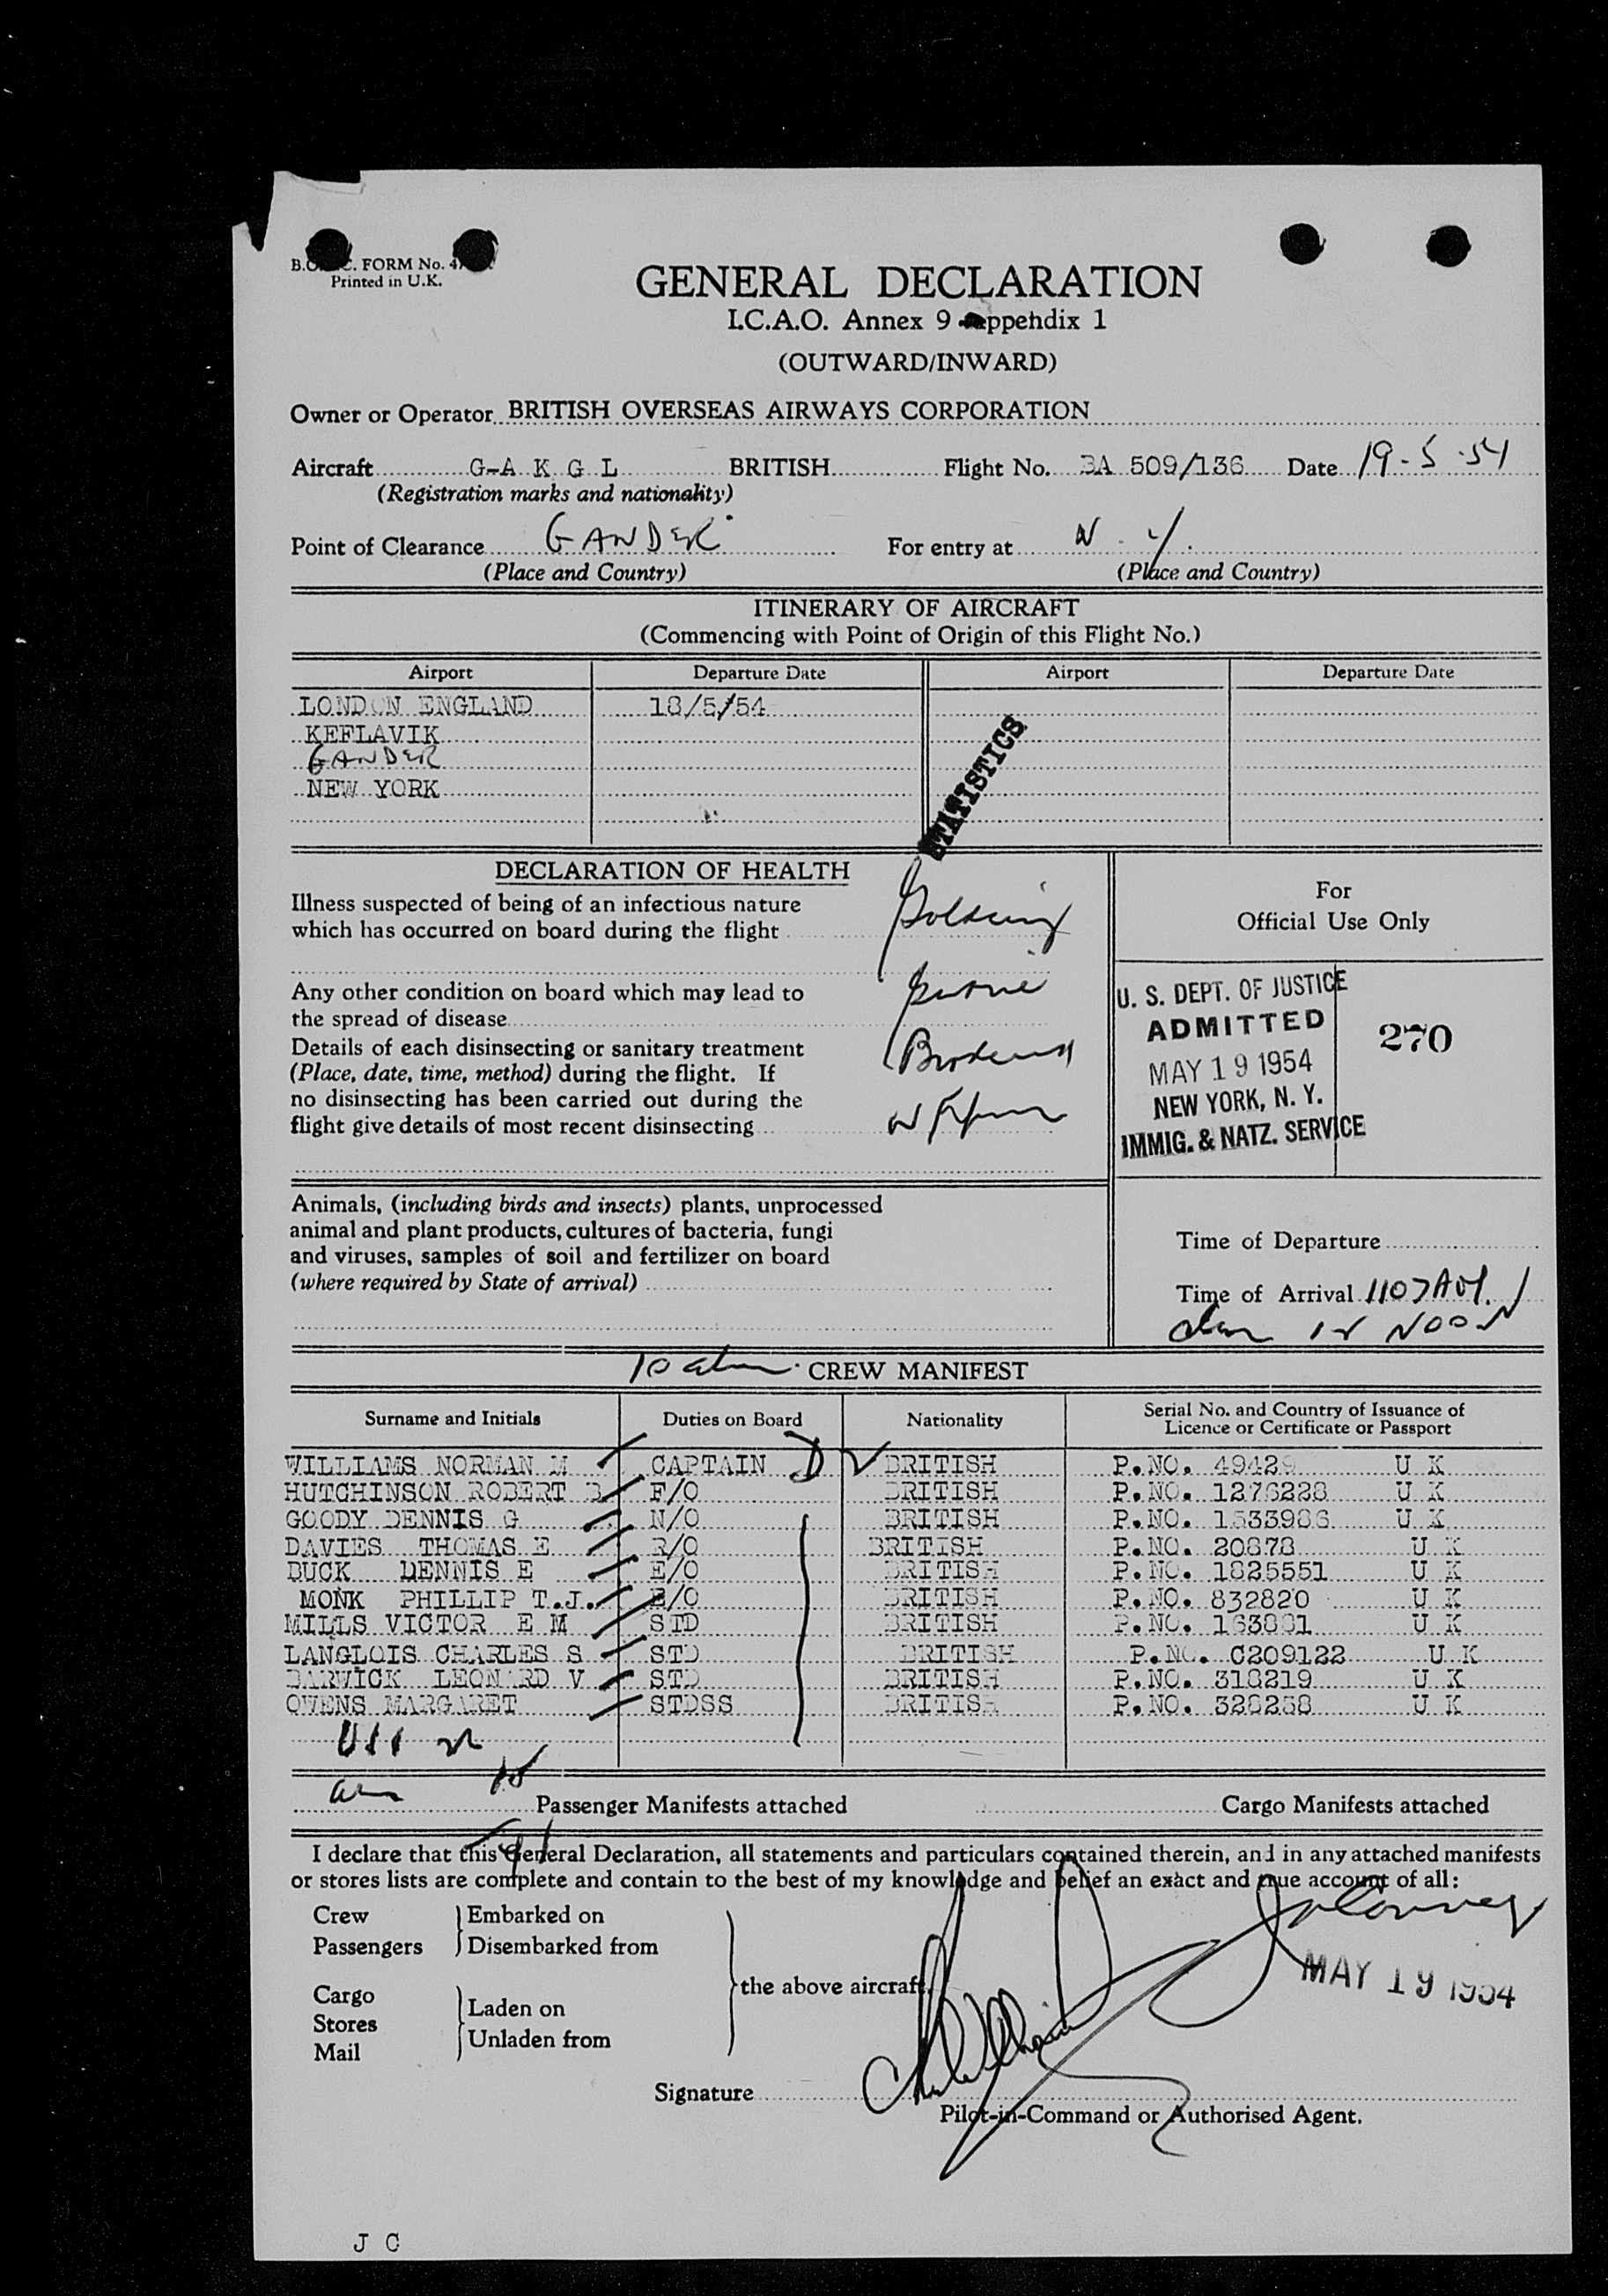 FORM No.
Printed in U.K.
GENERAL DECLARATION
I.C.A.O. Annex 9 Appendix 1
(OUTWARD/INWARD)
Owner or Operator BRITISH OVERSEAS AIRWAYS CORPORATION
Aircraft G-A K G L BRITISH Flight No. BA 509/136 Date 19-5-54
(Registration marks and nationality)
Point of Clearance GANDER For entry at N.Y.
(Place and Country) (Place and Country)
ITINERARY OF AIRCRAFT
(Commencing with Point of Origin of this Flight No.)
Airport Departure Date Airport Departure Date
LONDON ENGLAND 18/5/54
KEFLAVIK
GANDER
NEW YORK
STATISTICS
DECLARATION OF HEALTH
Illness suspected of being of an infectious nature
which has occurred on board during the flight
Any other condition on board which may lead to
the spread of disease
Details of each disinsecting or sanitary treatment
(Place, date, time, method) during the flight. If
no disinsecting has been carried out during the
flight give details of most recent disinsecting
For
Official Use Only
U. S. DEPT. OF JUSTICE
ADMITTED
MAY 19 1954
NEW YORK, N. Y.
IMMIG. & NATZ. SERVICE
270
Animals, (including birds and insects) plants, unprocessed
animal and plant products, cultures of bacteria, fungi
and viruses, samples of soil and fertilizer on board
(where required by State of arrival)
Time of Departure
Time of Arrival 1107AM.
NOON
10 CREW MANIFEST
Surname and Initials Duties on Board Nationality Serial No. and Country of Issuance of
Licence or Certificate or Passport
WILLIAMS NORMAN M CAPTAIN D BRITISH P.NO. 49429 U K
HUTCHINSON ROBERT B F/O BRITISH P.NO. 1276228 U K
GOODY DENNIS G N/O BRITISH P.NO. 1533986 U K
DAVIES THOMAS E R/O BRITISH P.NO. 20878 U K
BUCK DENNIS E E/O BRITISH P.NO. 1825551 U K
MONK PHILLIP T.J. E/O BRITISH P.NO. 832820 U K
MILLS VICTOR E M STD BRITISH P.NO. 163881 U K
LANGLOIS CHARLES S STD BRITISH P.NO. C209122 U K
BARWICK LEONARD V STD BRITISH P.NO. 318219 U K
OWENS MARGARET STDSS BRITISH P.NO. 328238 U K
Passenger Manifests attached Cargo Manifests attached
I declare that this General Declaration, all statements and particulars contained therein, and in any attached manifests
or stores lists are complete and contain to the best of my knowledge and belief an exact and true account of all:
Crew Embarked on
Passengers Disembarked from
the above aircraft.
MAY 19 1954
Cargo Laden on
Stores
Unladen from
Mail
Signature
Pilot-in-Command or Authorised Agent.
J C